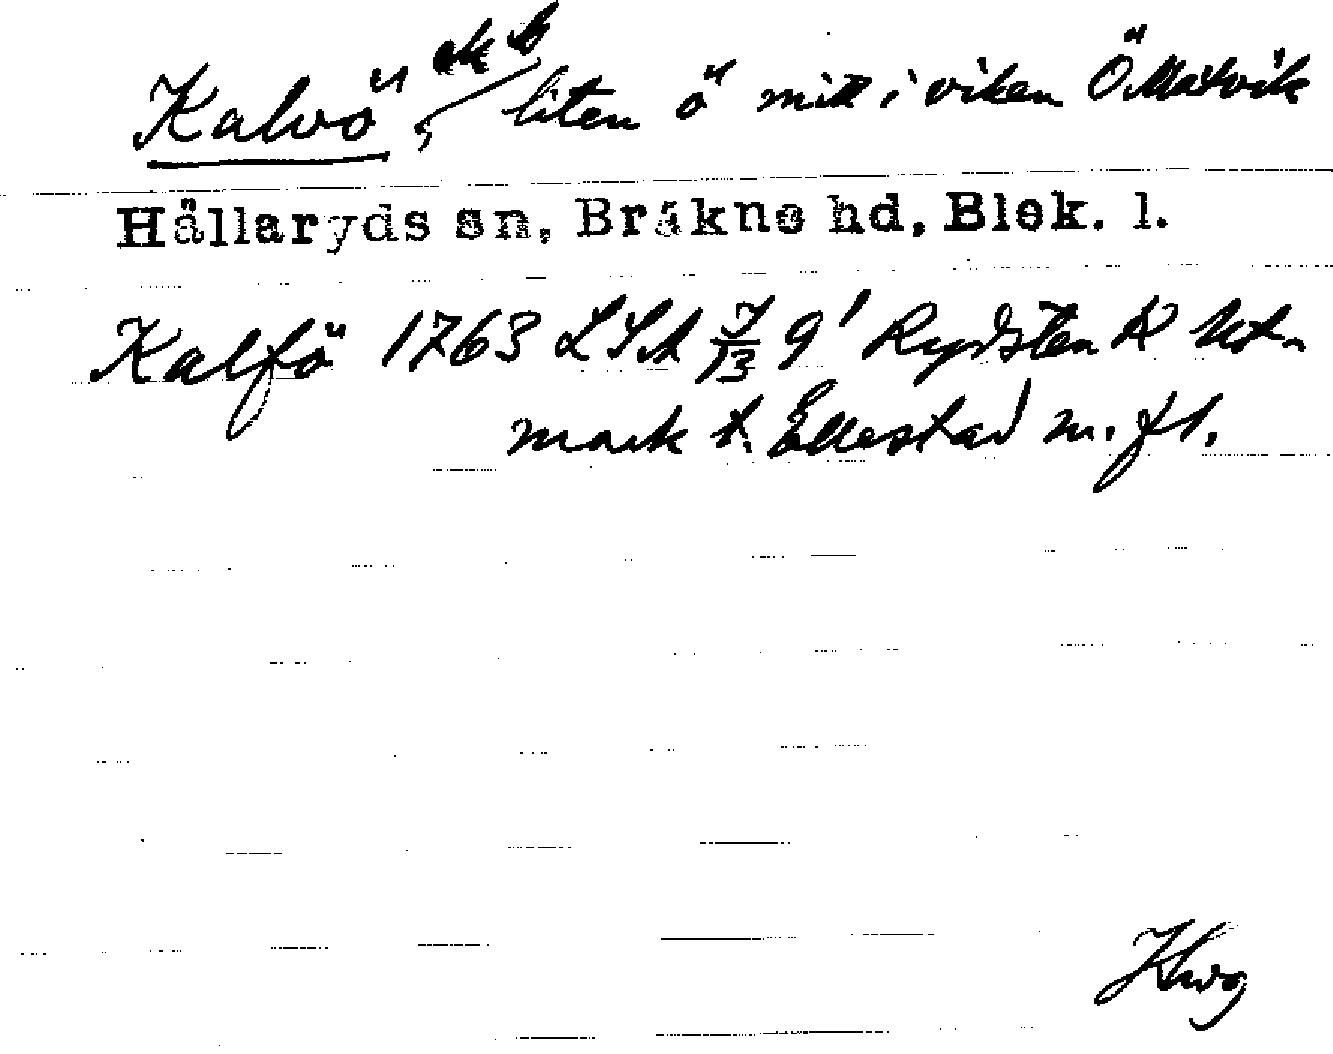 Kalvö, ek b liten ö mitt i viken Ö.Matvik
Hällaryds sn, Bräkne hd, Blek. l.
Kalfö 1763 LSA 9' Rydsten K Ut-
mark t. Ellestad m. fl.